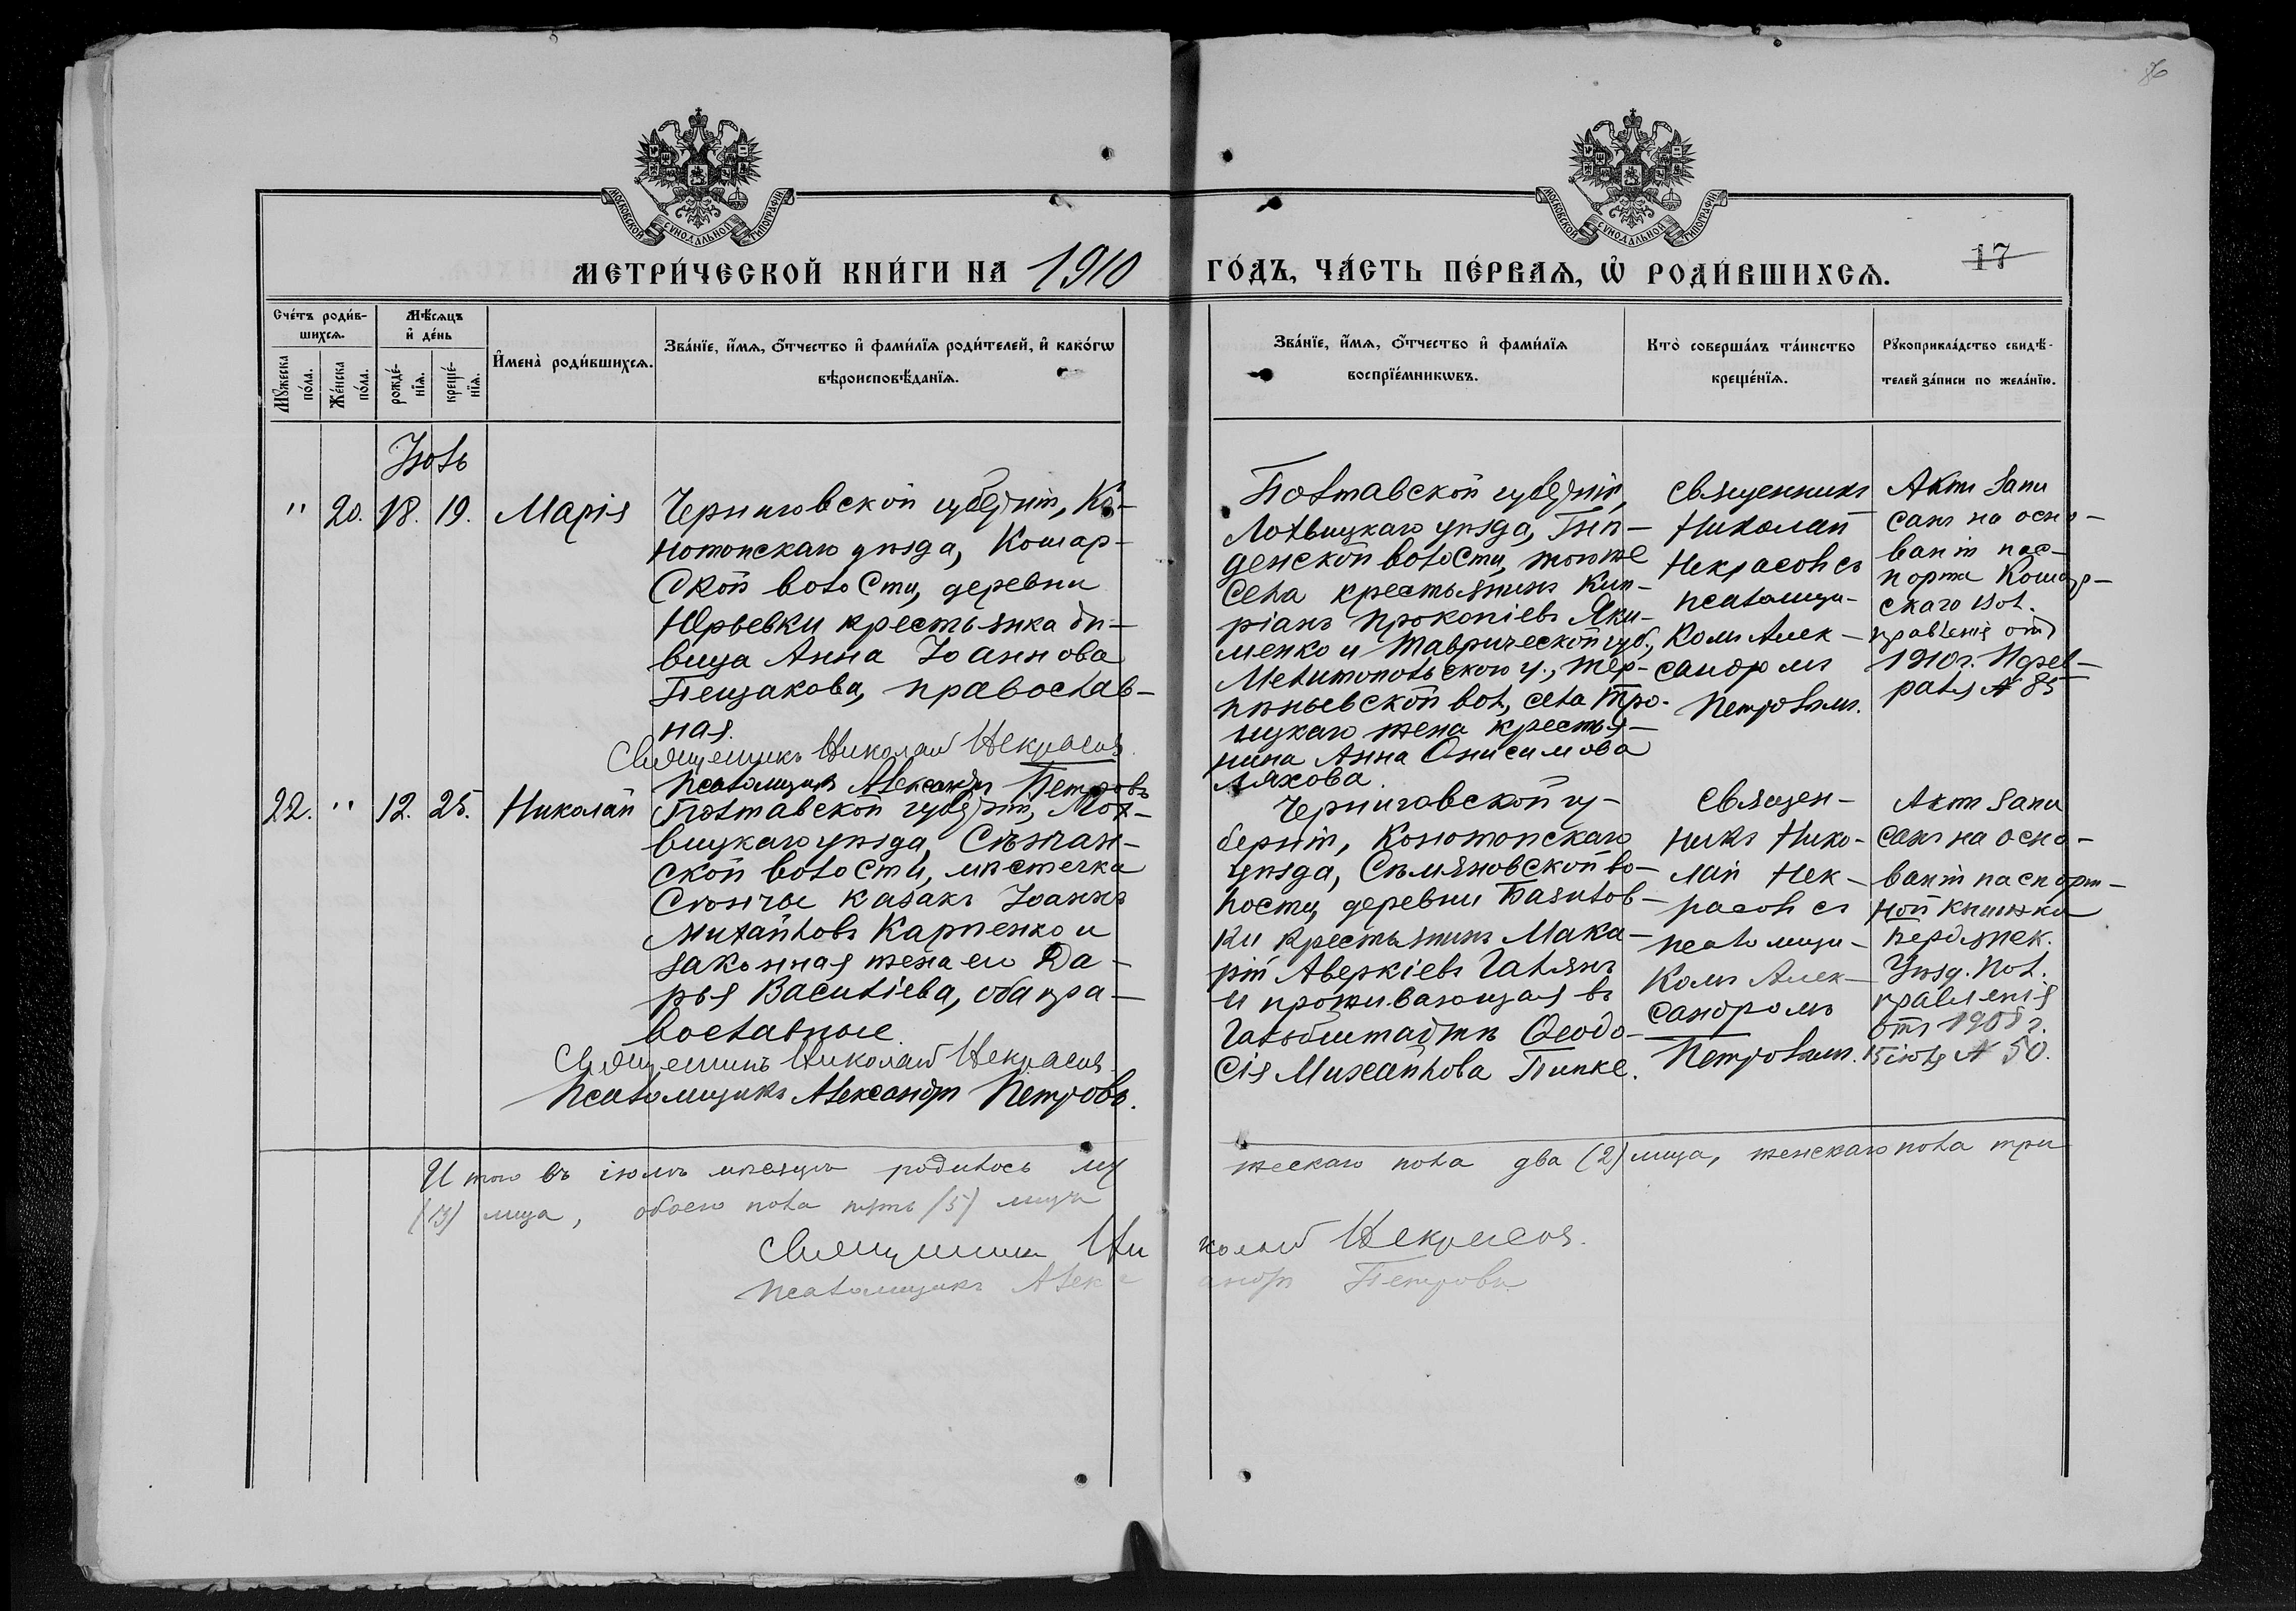 86
МОСКОВСКОЙ СУНОДАЛЬНОЙ ТИПОГРАФІИ
МОСКОВСКОЙ СУНОДАЛЬНОЙ ТИПОГРАФІИ
МЕТРИ́ЧЕСКОЙ КНИ́ГИ НА 1910
ГО́ДЪ, ЧА́СТЬ ПЕ́РВАѦ, Ѡ҆ РОДИ́ВШИХСѦ.
17
Сче́тъ роди́в-
шихсѧ.
Мꙋ́жеска
по́ла.
Же́нска
по́ла.
Мѣ́сѧцъ
и҆ де́нь
рожде́-
нїѧ.
креще́-
нїѧ.
И҆мена̀ роди́вшихсѧ.
Зва́нїе, и҆́мѧ, ѻ҆́тчество и҆ фами́лїѧ роди́телей, и҆ како́гѡ
вѣроисповѣ́данїѧ.
Зва́нїе, и҆́мѧ, ѻ҆́тчество и҆ фами́лїѧ
воспрїе́мникѡвъ.
Кто̀ соверша́лъ та́инство
креще́нїѧ.
Рꙋкоприкла́дство свидѣ́-
телей за́писи по жела́нїю.
Іюль
" 20. 18. 19. Марія
Черниговской губерніи, Ко-
нотопскаго уѣзда, Кошар-
ской волости, деревни
Юрьевки крестьянка дѣ-
вица Анна Іоаннова
Пещакова, православ-
ная.
Священникъ Николай Некрасовъ.
Псаломщикъ Александръ Петровъ
Полтавской губерніи,
Лохвицкаго уѣзда, Гнѣ-
денской волости, того же
села крестьянинъ Кип-
ріанъ Прокопіевъ Яки-
менко и Таврической губ.,
Мелитопольскаго у., Тер-
пѣньевской вол., села Тро-
ицкаго жена крестья-
нина Анна Онисимова
Ляхова.
Священникъ
Николай
Некрасовъ съ
псаломщи-
комъ Алек-
сандромъ
Петровымъ.
Актъ запи
санъ на осно-
ваніи пас-
порта Кошар-
скаго вол.
правленія отъ
1910 г. Февр-
раля № 85
22. " 12. 25. Николай
Полтавской губерніи, Лох-
вицкаго уѣзда, Сѣнчан-
ской волости, мѣстечка
Сѣнчы казакъ Іоаннъ
Михайловъ Карпенко и
законная жена его Да-
рья Василіева, оба пра-
вославные.
Священникъ Николай Некрасовъ.
Псаломщикъ Александръ Петровъ.
Черниговской гу-
берніи, Конотопскаго
уѣзда, Смѣляновской во-
лости, деревни Базилов-
ки крестьянинъ Мака-
рій Аверкіевъ Галянъ
и проживающая въ
Гальбштадтѣ Ѳеодо-
сія Михайлова Пипке.
Священ-
никъ Нико-
лай Нек-
расовъ съ
псаломщи-
комъ Алек-
сандромъ
Петровымъ.
Актъ запи
санъ на осно-
ваніи паспорт-
ной книжки
Бердянск.
Уѣзд. Пол.
правленія
отъ 1908 г.
15 іюля № 50.
Итого въ іюлѣ мѣсяцѣ родилось му
жескаго пола два (2) лица, женскаго пола три
(3) лица, обоего пола пять (5) лицъ
Священникъ Ни
колай Некрасовъ.
Псаломщикъ Алекс
андръ Петровъ